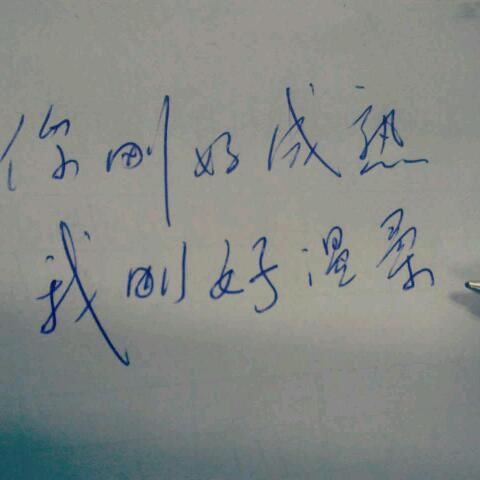 你刚好成熟
我刚好温柔